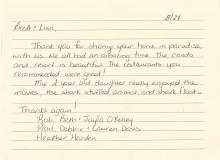 8/29
Brett & Lisa,
Thank you for sharing your home in paradise
with us. We all had an amazing time. The condo
and resort is beautiful. The restaurants you
recommended were great!
My 2 year old daughter really enjoyed the
movies, the shark stuffed animal, and shark float.
Thanks again!
Rob, Beth & Jayla O'Kelley
Paul, Debbie & Lauren Davis
Heather Harden